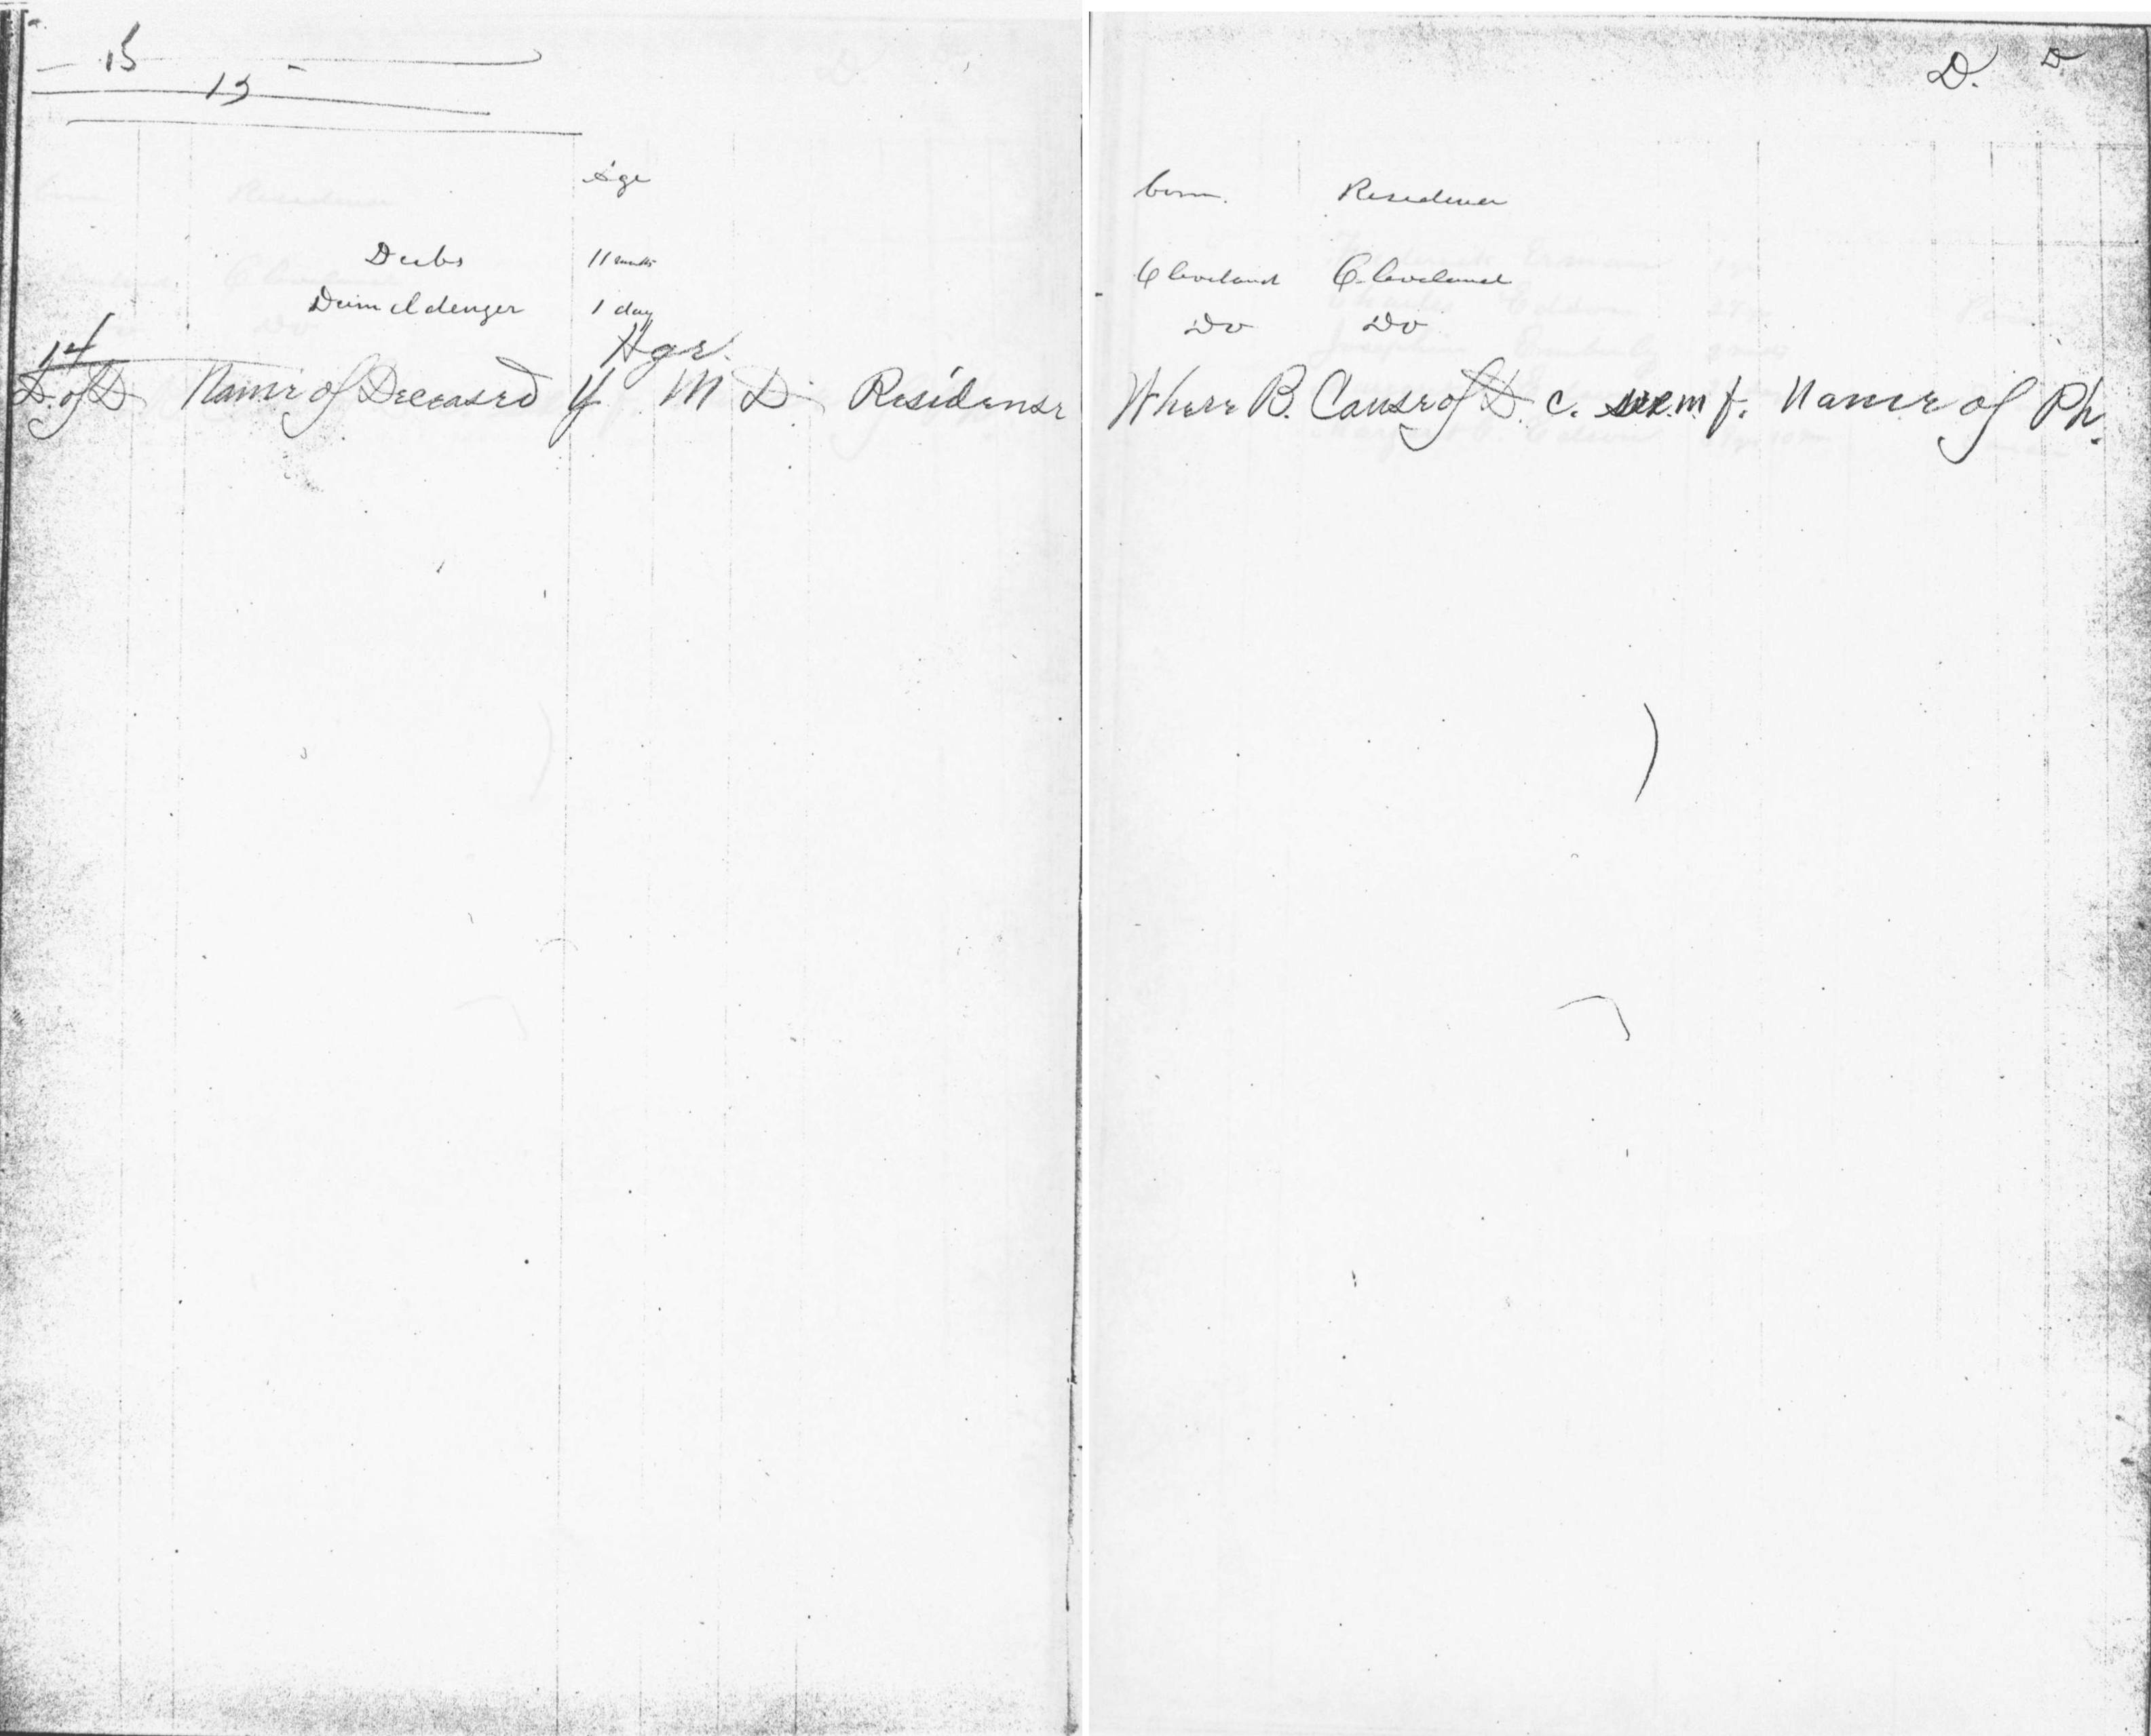 15
15
D. D
Age
born. Residence
Deebs 11 months Cleveland Cleveland
Deimeldenger 1 day Do Do
14 Age.
D. of D Name of Deceased Y M D Residense Where B. Cause of D. c. m f. Name of Ph.